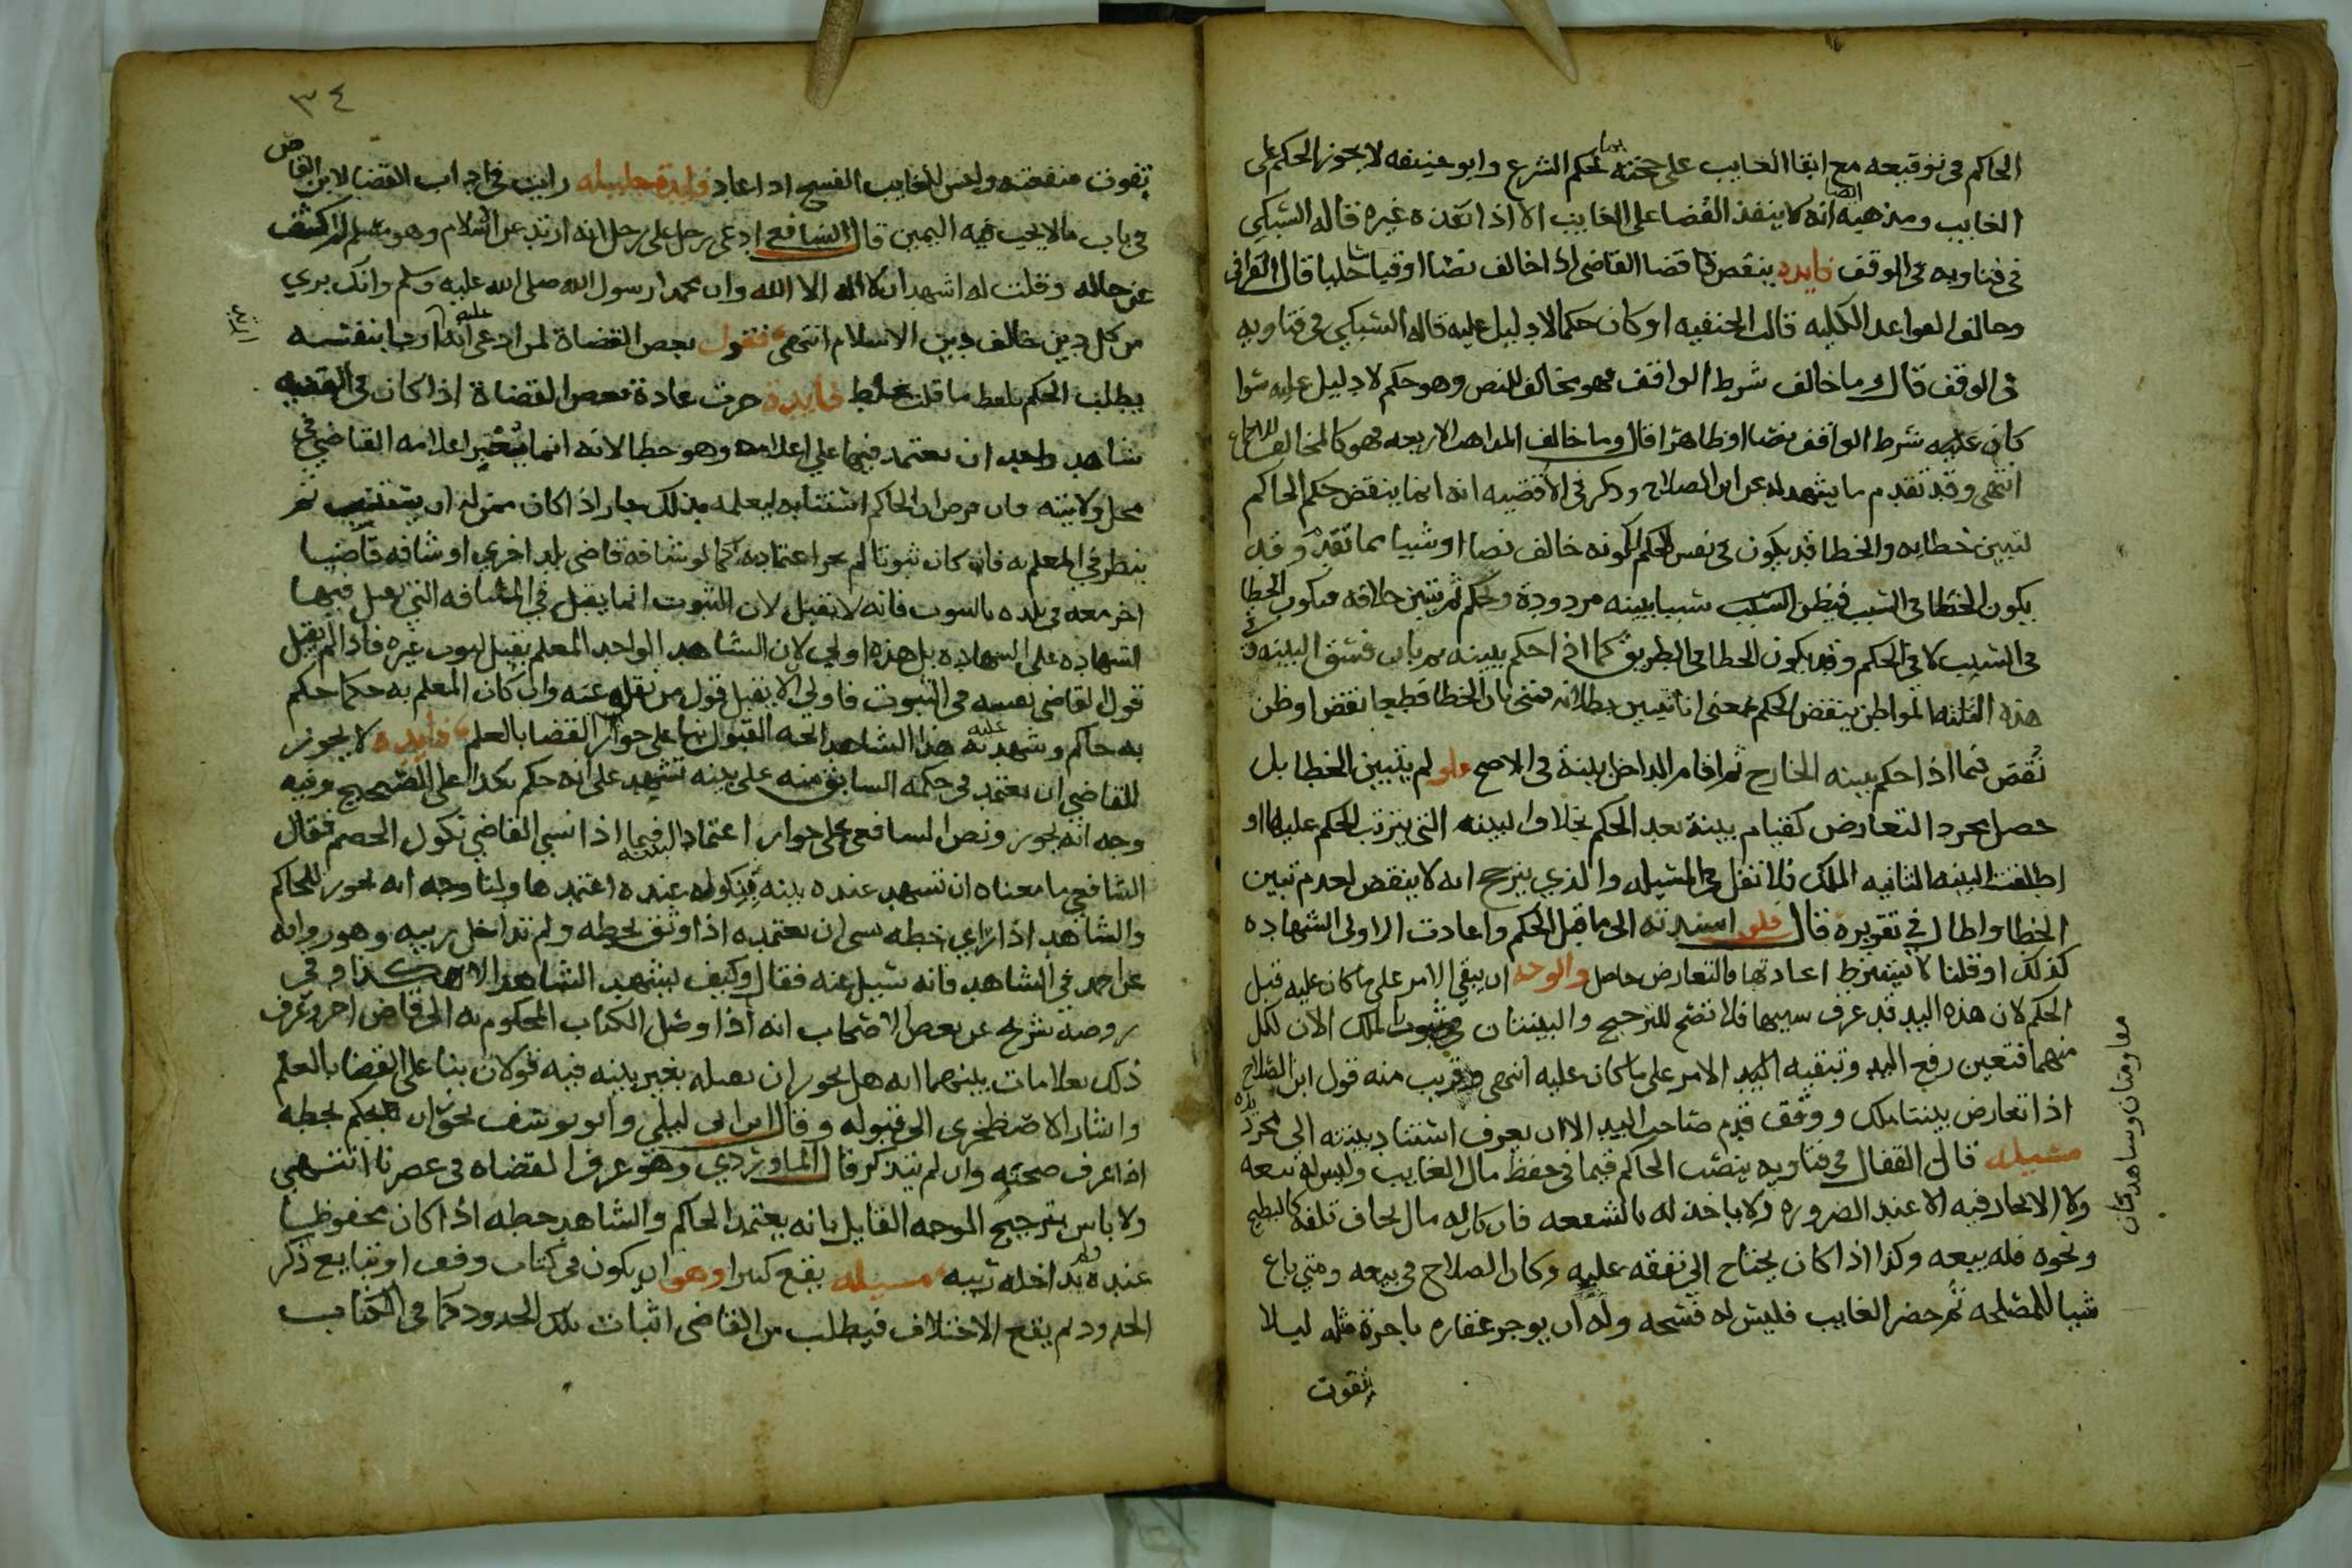 الحاكم في توقيعه مع ابقا الغايب على حجته بحكم الشرع وابو حنيفه لا يجوز الحكم على
الغايب ومن مذهبه ايضا انه لا ينفذ القضا على الغايب الا اذا نفذه غيره قاله السبكي
في فتاويه في الوقف فايده ينقص قضا القاضي اذا خالف نصا او قياسا جليا قال القرافي
وخالف القواعد الكليه قالت الحنفيه او كان حكما لا دليل عليه قاله السبكي في فتاويه
في الوقف قال وما خالف شرط الواقف فهو مخالف للنص وهو حكم لا دليل عليه سوا
كان عليه شرط الواقف نصا او ظاهرا قال وما خالف المذاهب الاربعه فهو كالمخالف للاجماع
انتهى وقد تقدم ما يشهد له عن ابن الصلاح وذكر في الاقضيه انه انما ينقض حكم الحاكم
لتبين خطايه والخطا قد يكون في نفس الحكم لكونه خالف نصا او شيا مما تقدم وقد
يكون الخطا في السبب فيظن السبب شيا ببينه مردودة ويحكم ثم تبين خلافه فيكون الخطا
في السبب لا في الحكم وقد يكون الخطا في الطريق كما اذا حكم ببينه ثم بان فسق البينه في
هذه الثلثه المواطن ينقض الحكم بمعنى انا تبين بطلانه فمتى بان الخطا قطعيا نقض او ظن
نقض كما اذا حكم ببينه الخارج ثم اقام الداخل بينة في الاصح فلو لم يتبين الخطا بل
حصل مجرد التعارض كقيام بينة بعد الحكم بخلاف البينه التي يترتب الحكم عليها او
اطلقت البينه الثانيه الملك فلا نقل في المسيله والذي يترجح انه لا ينقض لعدم تبين
الخطا واطال في تقريره قال فلو اسندته الى ما قبل الحكم واعادت الاولى الشهاده
كذلك او قلنا لا يشترط اعادتها فالتعارض حاصل والوجه ان يبقى الامر على ما كان عليه قبل
الحكم لان هذه اليد قد عرف سببها فلا تصح للترجيح والبينتان في ثبوت الملك الان لكل
منهما فتعين رفع اليد وتبقيه اليد الامر على ما كان عليه انتهى وقريب منه قول ابن الصلاح
اذا تعارض بينتا ملك ووقف قدم صاحب اليد الا ان يعرف استناد بينته الى مجرد يده
مسيله قال القفال في فتاويه ينصب الحاكم قيما في حفظ مال الغايب وليس له بيعه
ولا الاتجار فيه الا عند الضروره ولا ياخذ له بالشفعه فان كان له مال يخاف تلفه كالبطيخ
ونحوه فله بيعه وكذا اذا كان يحتاج الى نفقه عليه وكان الصلاح في بيعه ومتى باع
شيا للمصلحه ثم حضر الغايب فليس له فسخه وله ان يوجر عقاره باجرة مثله ليلا
تفوت
٣٤
تفوت منفعته وليس للغايب الفسخ اذا عاد فايدة جليله رايت في اداب القضا لابن القاص
في باب ما لا يجب فيه اليمين قال الشافعي ادعى رجل على رجل انه ارتد عن الاسلام وهو مسلم لم اكشف
عن حاله وقلت له اشهد ان لا اله الا الله وان محمدا رسول الله صلى الله عليه وسلم وانك بري
من كل دين خالف دين الاسلام انتهى فقول بعض القضاة لمن ادعى عليه انه ارجا بنفسه
يطلب الحكم تلفظ ما قلت غلط فايدة جرت عادة بعض القضاة اذا كان في القضيه
شاهد واحد ان يعتمد فيها على اعلامه وهو خطا لانه انما يعتبر اعلامه القاضي في
محل ولايته فان فرض ان الحاكم استنابه ليعلمه بذلك جاز اذا كان ممن له ان يستنيب ثم
ينظر في المعلم به فان كان ثبوتا لم يجز اعتماده كما لو شافه قاضي بلد اخرى او شافه قاضيا
اخر معه في بلده بالثبوت فانه لا تقبل لان الثبوت انما يقبل في المسافه التي تقبل فيها
الشهاده على الشهاده بل هذه اولى لان الشاهد الواحد المعلم يقبل ثبوت غيره فاذا لم يقبل
قول القاضي نفسه في الثبوت فاولى الا يقبل قول من نقله عنه وان كان المعلم به حكما حكم
به حاكم وشهد به عليه هذا الشاهد اتجه القبول بنا على جواز القضا بالعلم فايدة لا يجوز
للقاضي ان يعتمد في حكمه السابق منه على بينه تشهد على انه حكم بكذا على الصحيح وفيه
وجه انه يجوز ونص الشافعي على جواز اعتماد البينه فيما اذا نسي القاضي نكول الخصم فقال
الشافعي ما معناه ان تشهد عنده بينه بنكوله عنده اعتمدها ولنا وجه انه يجوز للحاكم
والشاهد اذا راي خطه نسى ان يعتمده اذا وثق بخطه ولم تداخله ريبه وهو روايه
عن احمد في الشاهد فانه سيل عنه فقال وكيف يشهد الشاهد الا هكذا وفي
روضة شريح عن بعض الاصحاب انه اذا وصل الكتاب المحكوم به الى قاض اخر وعرف
ذلك بعلامات بينهما انه هل يجوز ان يقبله بغير بينه فيه قولان بنا على القضا بالعلم
واشار الاصطخري الى قبوله وقال ابن ابي ليلى وابو يوسف يجوز ان يحكم بخطه
اذا عرف صحته وان لم يتذكر قال الماوردي وهو عرف القضاه في عصرنا انتهى
ولا باس بترجيح الوجه القايل بانه يعتمد الحاكم والشاهد خطه اذا كان محفوظا
عنده ولم تداخله ريبه مسيله يقع كثيرا وهو ان يكون في كتاب وقف او تبايع ذكر
الحدود ثم يقع الاختلاف فيطلب من القاضي اثبات تلك الحدود كما في الكتاب